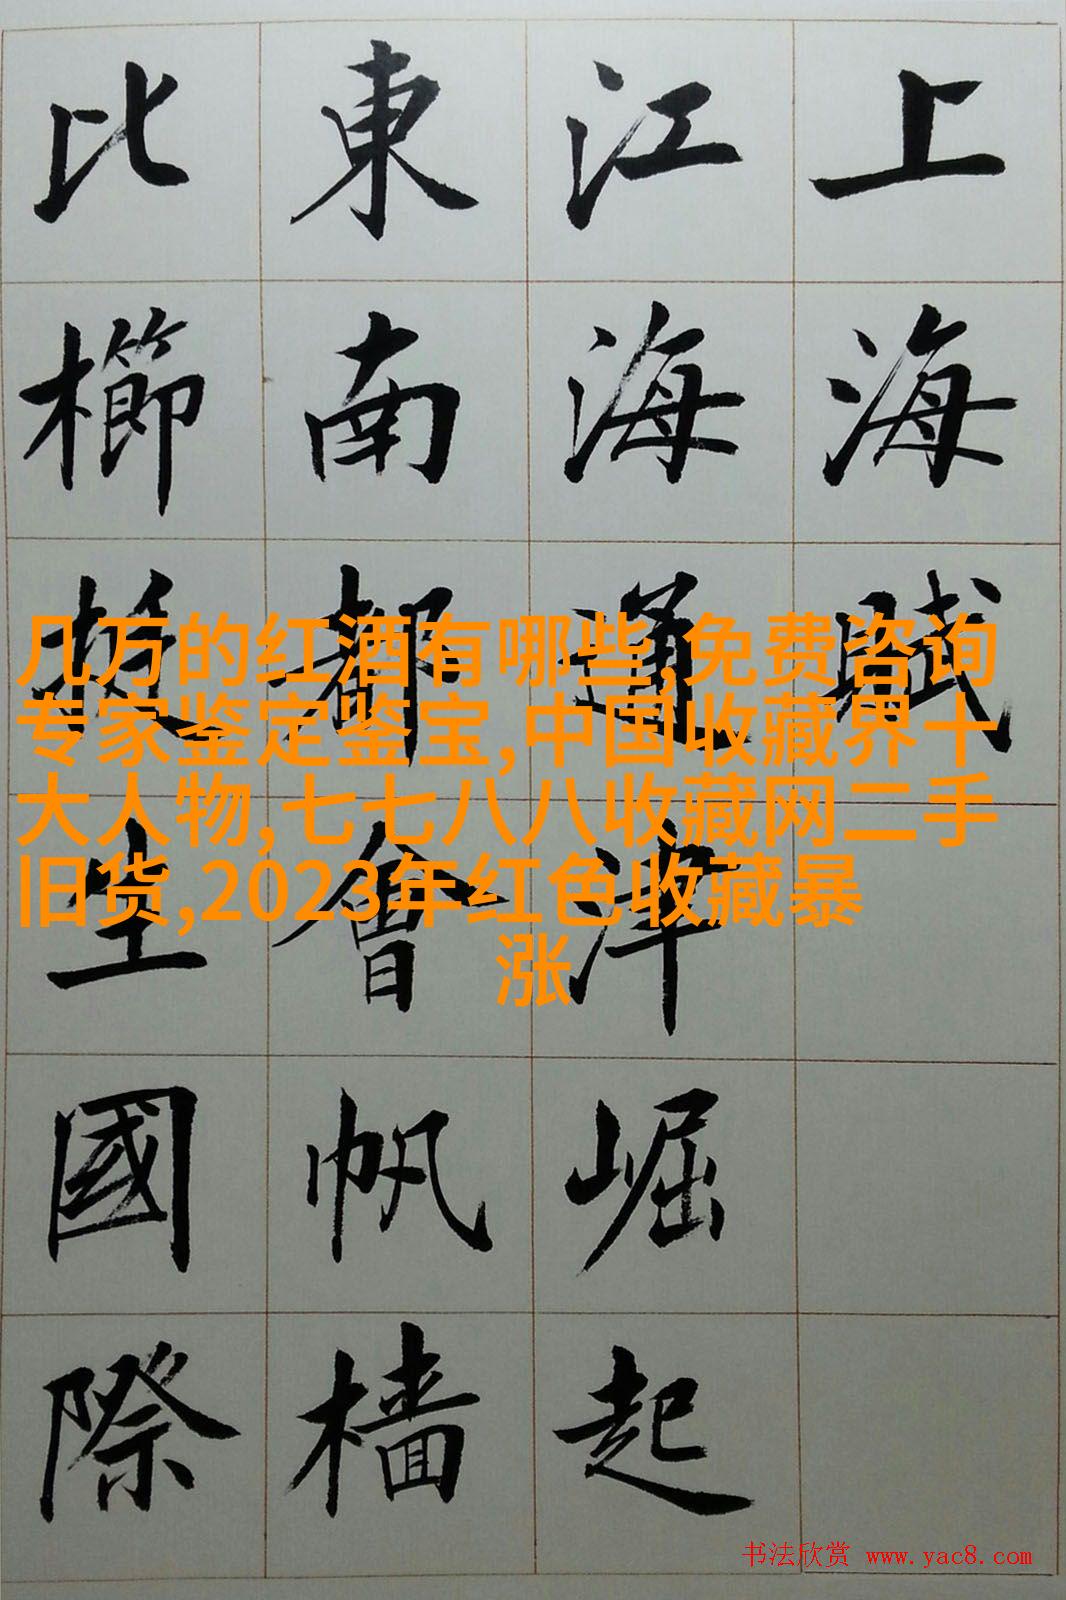 上海賦
江海通津崛起
東南都會帆檣
比櫛挺生國際
几万的红酒有哪些,免费咨询
专家鉴定鉴宝,中国收藏界十
大人物,七七八八收藏网二手
旧货,2023年红色收藏暴
涨
书法欣赏 www.yac8.com